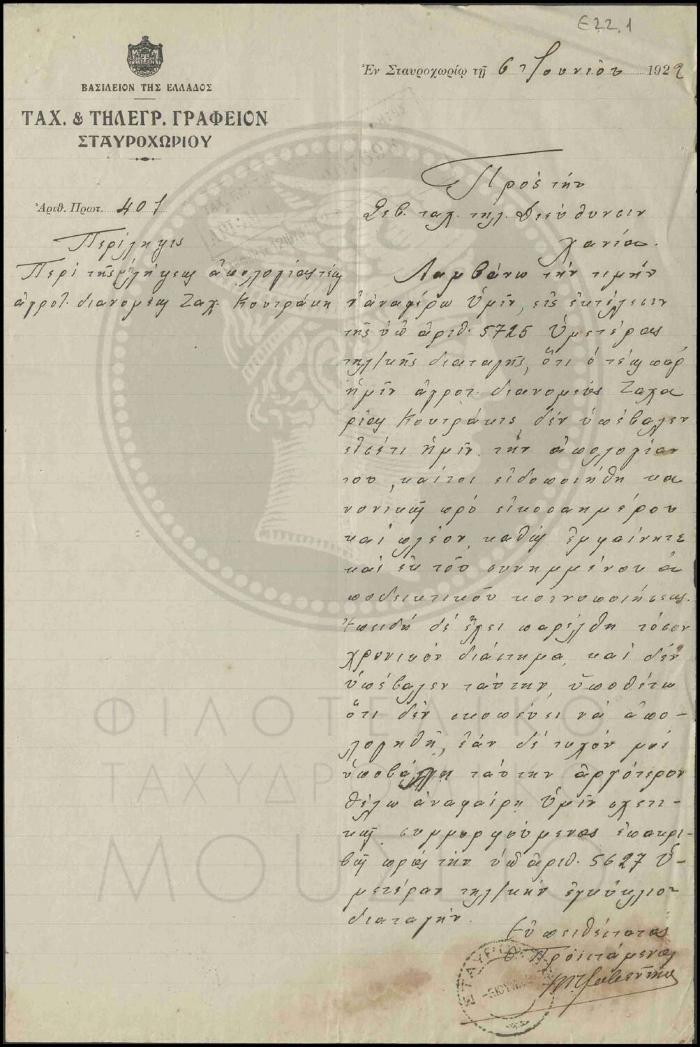 Ε22.1
ΒΑΣΙΛΕΙΟΝ ΤΗΣ ΕΛΛΑΔΟΣ
ΤΑΧ. & ΤΗΛΕΓΡ. ΓΡΑΦΕΙΟΝ
ΣΤΑΥΡΟΧΩΡΙΟΥ
Ἐν Σταυροχωρίῳ τῇ 6 Ἰουνίου 1922
Ἀριθ. Πρωτ. 401
Περίληψις
Περὶ τῆς μὴ λήψεως ἀπολογίας τέως
ἀγροτ. διανομέως Ζαχ. Κουτράκη
Πρὸς τὴν
Σεβ. ταχ. τηλ. Διεύθυνσιν
Χανία.
Λαμβάνω τὴν τιμὴν
ν' ἀναφέρω Ὑμῖν, εἰς ἐκτέλεσιν
τῆς ὑπ' ἀριθ. 5725 Ὑμετέρας
τηλ/κῆς διαταγῆς, ὅτι ὁ τέως παρ'
ἡμῖν ἀγροτ. διανομεὺς Ζαχα
ρίας Κουτράκις, δὲν ὑπέβαλεν
εἰσέτι ἡμῖν τὴν ἀπολογίαν
του, καίτοι εἰδοποιήθη κα
νονικῶς πρὸ εἰκοσαημέρου
καὶ πλέον, καθὼς ἐμφαίνητε
καὶ ἐκ τοῦ συνημμένου ἀ
ποδεικτικοῦ κοινοποιήσεως.
Ἐπειδὴ δὲ ἔχει παρέλθη τόσον
χρονικὸν διάστημα, καὶ δὲν
ὑπέβαλεν ταύτην, ὑποθέτω
ὅτι δὲν σκοπεύει νὰ ἀπο-
λογηθῇ, ἐὰν δὲ τυχὸν μοὶ
ὑποβάλῃ ταύτην ἀργότερον
θέλω ἀναφαίρη Ὑμῖν σχετι-
κῶς συμμορφούμενος ἐπακρι-
βῶς πρὸς τὴν ὑπ' ἀριθ. 5627 Ὑ-
μετέραν τηλ/κὴν ἐγκύκλιο-
διαταγήν.
Εὐπειθέστατος
Ὁ Προϊστάμενος
ΣΤΑΥΡΟΧ
ΦΙΛΟΤΕΛΙΚΟ
ΤΑΧΥΔΡΟΜΙΚΟ
ΜΟΥΣΕΙΟ